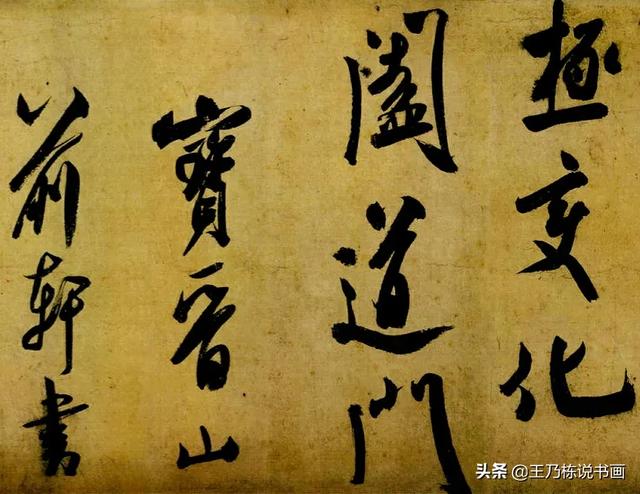 極變化
闔道門
寶晉山
前軒書
头条 @王乃栋说书画